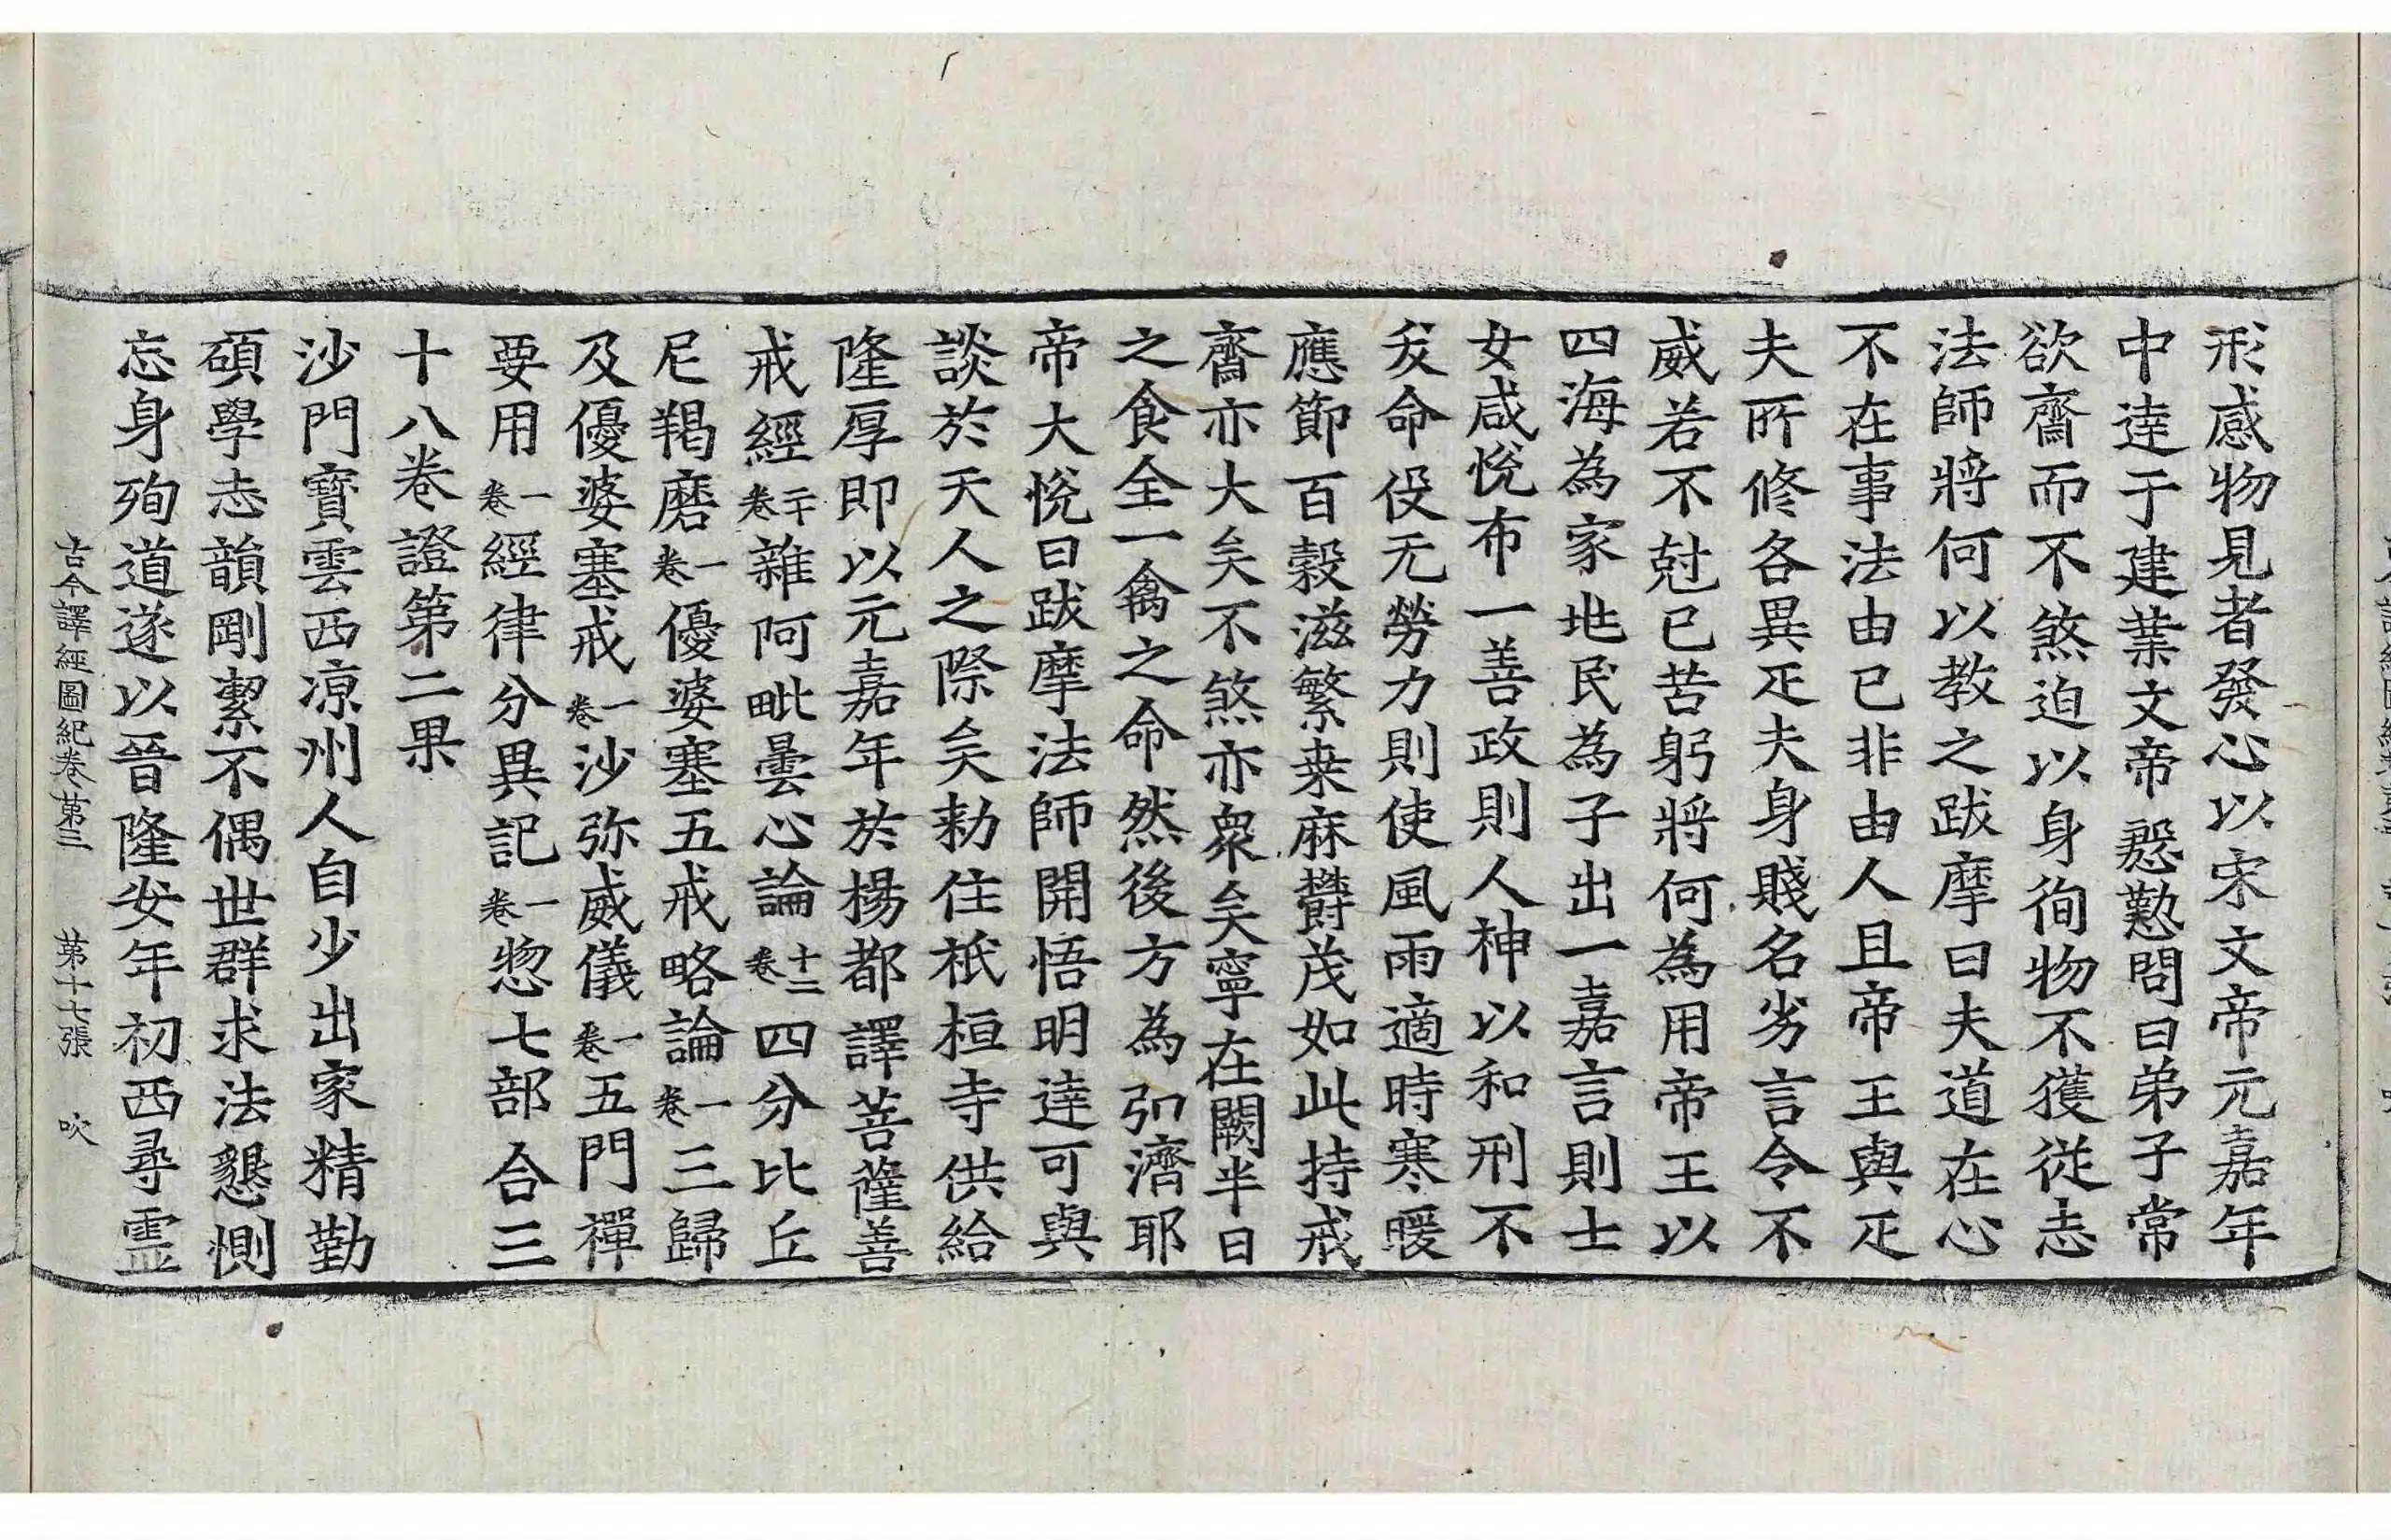 形感物見者發心以宋文帝元嘉年
中達于建業文帝慇懃問曰弟子常
欲齋而不煞迫以身徇物不獲從志
法師將何以教之跋摩曰夫道在心
不在事法由己非由人且帝王與疋
夫所修各異疋夫身賤名劣言令不
威若不尅已苦躬將何為用帝王以
四海為家地民為子出一嘉言則士
女咸悅布一善政則人神以和刑不
夭命役无勞力則使風雨適時寒暖
應節百穀滋繁桒麻欝茂如此持戒
齋亦大矣不煞亦衆矣寧在闕半日
之食全一禽之命然後方為弘濟耶
帝大悅曰跋摩法師開悟明達可與
談於天人之際矣勑住祇桓寺供給
隆厚即以元嘉年於楊都譯菩薩善
戒經二十卷雜阿毗曇心論十三卷四分比丘
尼羯磨一卷優婆塞五戒略論一卷三歸
及優婆塞戒一卷沙弥威儀一卷五門禪
要用一卷經律分異記一卷惣七部合三
十八卷證第二果
沙門寶雲西凉州人自少出家精勤
碩學志韻剛潔不偶世群求法懇惻
忘身殉道遂以晉隆安年初西尋霊
古今譯經圖紀卷第三 第十七張 吹